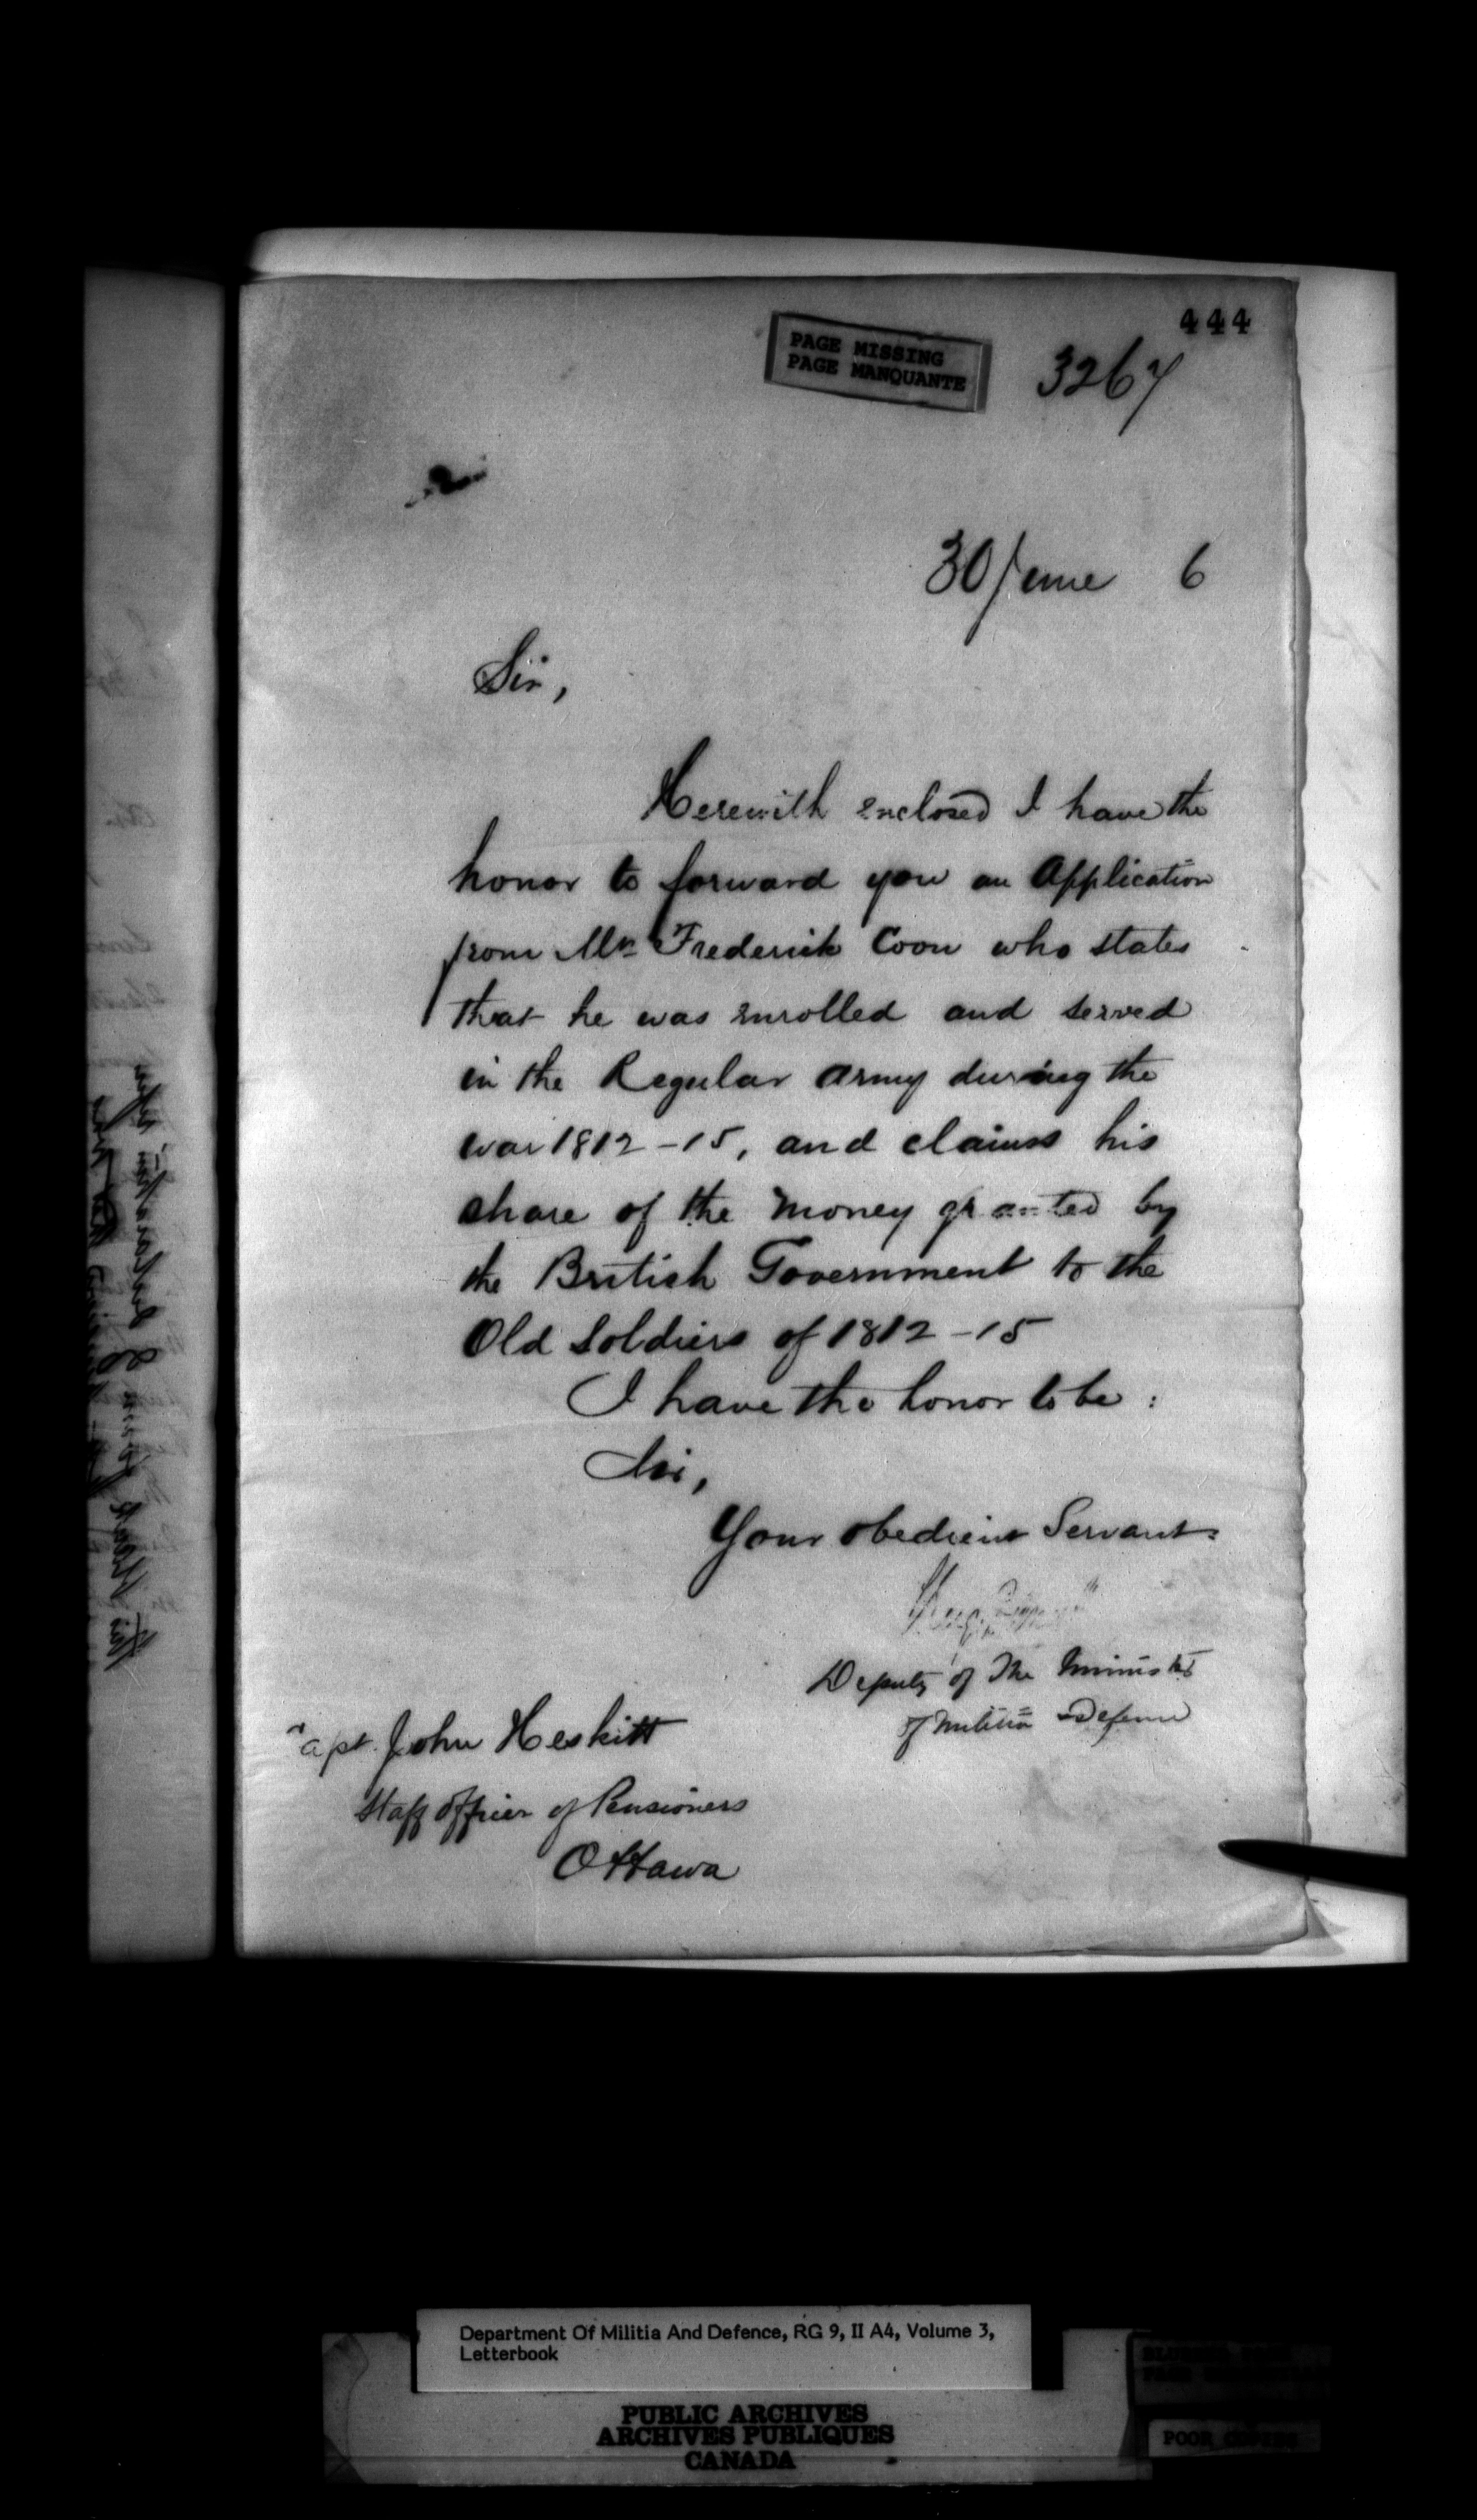 444
PAGE MISSING
PAGE MANQUANTE
3267
30 June 6
Sir,
Herewith enclosed I have the
honor to forward you an Application
from Mr Frederick Coon who states
that he was enrolled and served
in the Regular army during the
war 1812-15, and claims his
share of the money granted by
the British Government to the
Old Soldiers of 1812-15
I have the honor to be :
Sir,
Your obedient Servant
Deputy of The Minister
of Militia & Defence
Capt. John Heskitt
Staff Officer of Pensioners
Ottawa
Department Of Militia And Defence, RG 9, II A4, Volume 3,
Letterbook
PUBLIC ARCHIVES
ARCHIVES PUBLIQUES
CANADA
POOR